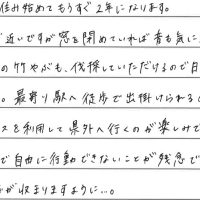 住み始めてもうすぐ2年になります。
近いですが窓を閉めていれば音も気に
の竹やぶも、伐採していただけるので日
。最寄り駅へ徒歩で出掛けられる
スを利用して県外へ行くのが楽しみで
で自由に行動できないことが残念で
が収まりますように…。